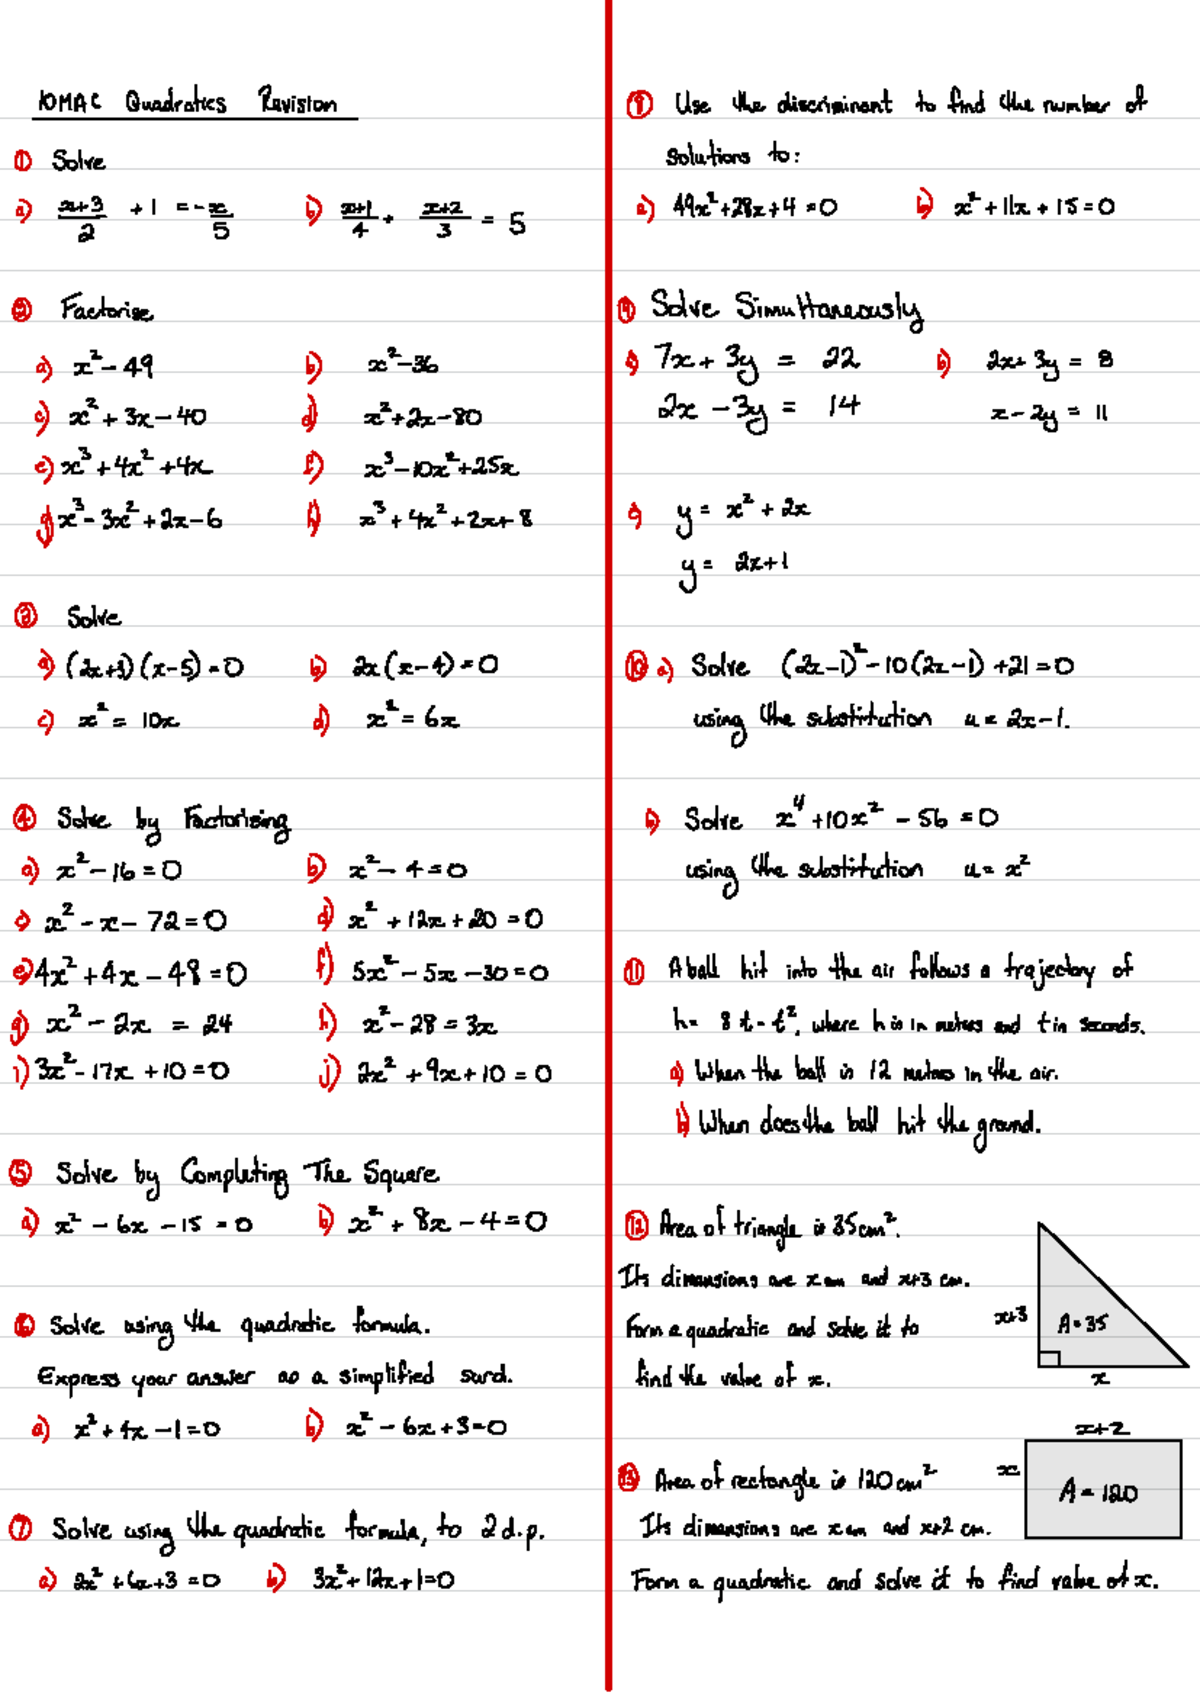 10MAC Quadratics Revision
① Solve
a) (x+3)/2 + 1 = -x/5 b) (x+1)/4 + (x+2)/3 = 5
② Factorise
a) x² - 49 b) x² - 36
c) x² + 3x - 40 d) x² + 2x - 80
e) x³ + 4x² + 4x f) x³ - 10x² + 25x
g) x³ - 3x² + 2x - 6 h) x³ + 4x² + 2x + 8
③ Solve
a) (2x+3)(x-5) = 0 b) 2x(x-4) = 0
c) x² = 10x d) x² = 6x
④ Solve by Factorising
a) x² - 16 = 0 b) x² - 4 = 0
c) x² - x - 72 = 0 d) x² + 12x + 20 = 0
e) 4x² + 4x - 48 = 0 f) 5x² - 5x - 30 = 0
g) x² - 2x = 24 h) x² - 28 = 3x
i) 3x² - 17x + 10 = 0 j) 2x² + 9x + 10 = 0
⑤ Solve by Completing The Square
a) x² - 6x - 15 = 0 b) x² + 8x - 4 = 0
⑥ Solve using the quadratic formula.
Express your answer as a simplified surd.
a) x² + 4x - 1 = 0 b) x² - 6x + 3 = 0
⑦ Solve using the quadratic formula, to 2 d.p.
a) 2x² + 6x + 3 = 0 b) 3x² + 12x + 1 = 0
Use the discriminant to find the number of
solutions to:
a) 49x² + 28x + 4 = 0 b) x² + 11x + 15 = 0
⑨ Solve Simultaneously
a) 7x + 3y = 22 b) 2x + 3y = 8
2x - 3y = 14 x - 2y = 11
c) y = x² + 2x
y = 2x + 1
⑩ a) Solve (2x-1)² - 10(2x-1) + 21 = 0
using the substitution u = 2x - 1.
b) Solve x⁴ + 10x² - 56 = 0
using the substitution u = x²
⑪ A ball hit into the air follows a trajectory of
h = 8t - t², where h is in metres and t in seconds.
a) When the ball is 12 metres in the air.
b) When does the ball hit the ground.
⑫ Area of triangle is 35cm².
Its dimensions are x cm and x+3 cm.
Form a quadratic and solve it to
find the value of x.
x+3
A = 35
x
⑬ Area of rectangle is 120 cm²
Its dimensions are x cm and x+2 cm.
Form a quadratic and solve it to find value of x.
x+2
x
A = 120